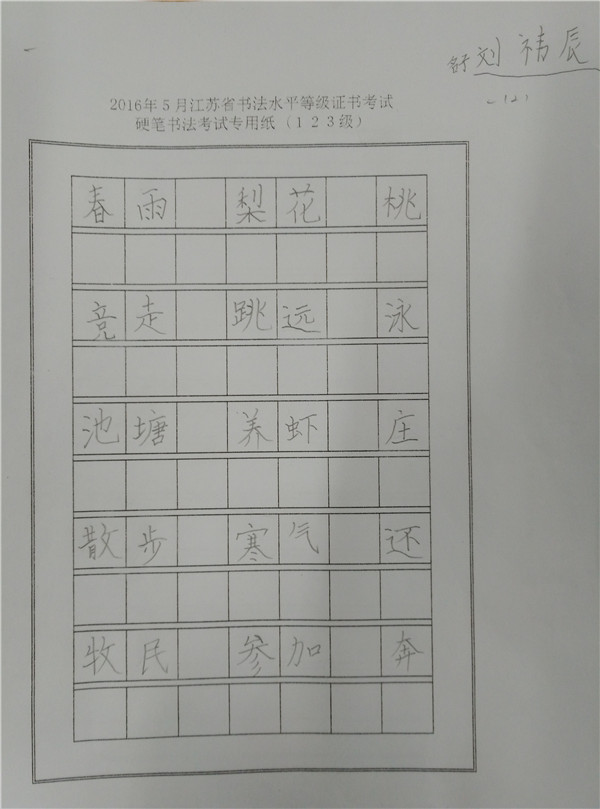 舒 刘祎辰
(2)
2016年5月江苏省书法水平等级证书考试
硬笔书法考试专用纸(123级)
春雨 梨花 桃
竞走 跳远 泳
池塘 养虾 庄
散步 寒气 还
牧民 参加 奔